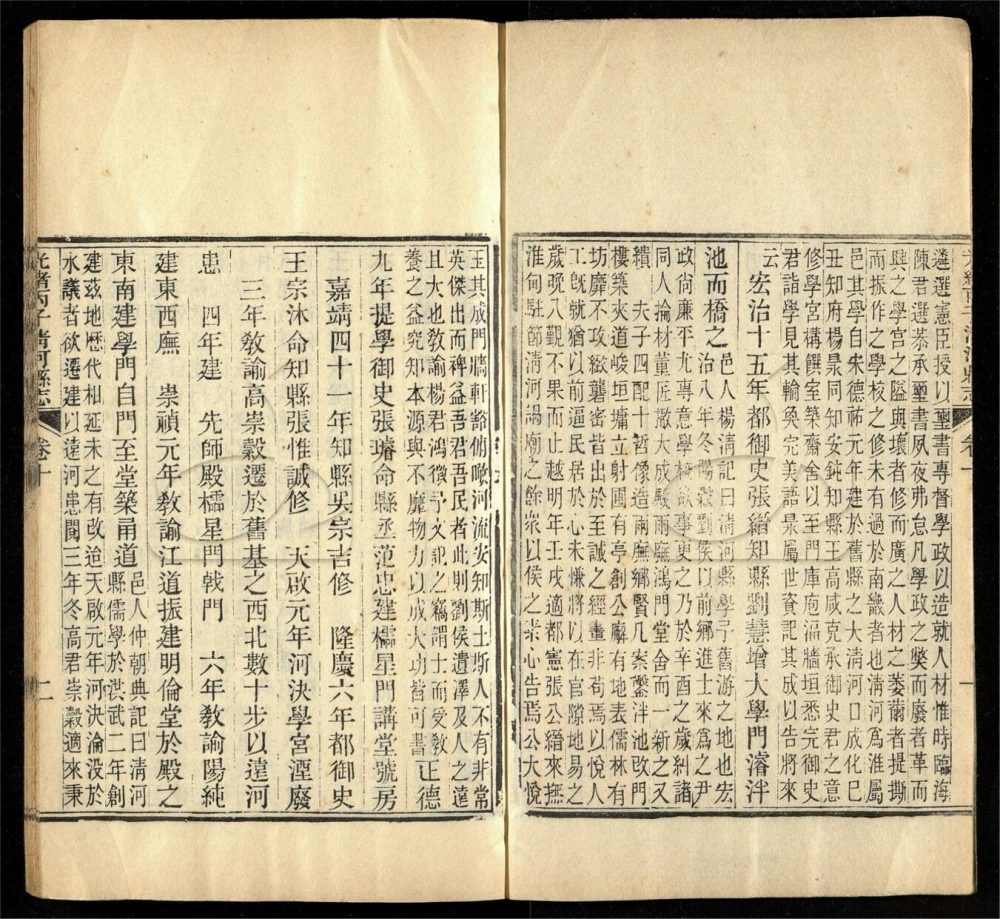 遴選憲臣授以璽書專督學政以造就人材惟時臨海
陳君選恭承璽書夙夜弗怠凡學政之獘而廢者革而
興之學宮之隘與壞者修而廣之人材之萎薾者提撕
而振作之學校之修未有過於南畿者也淸河爲淮屬
邑其學自朱德祐元年建於舊縣之大淸河口成化己
丑知府楊昹同知安鈍知縣王高咸克承御史君之意
修學宮構饌室築齋舍以至門庫庖湢牆垣悉完御史
君詣學見其輪奐完美語昹屬世資記其成以告將來
云
宏治十五年都御史張縉知縣劉慧增大學門濬泮
池而橋之
邑人楊淸記曰淸河縣學予舊游之地也宏
治八年冬陽穀劉侯以前鄉進士來爲之尹
政尚廉平尤專意學校欲事更之乃於辛酉之歲糾諸
同人掄材董匠敞大成殿兩廡鴻門堂舍而一新之又
繢夫子四配十哲像造兩廡鄉賢几案鑿泮池改門
樓築夾道峻垣墉立射圃有亭創公廨有地表儒林有
坊靡不攻緻礱密皆出於至誠之經畫非苟焉以悅人
工旣就猶以前逼民居於心未慊將以在官隙地易之
歲晩入覲不果而止越明年壬戌適都憲張公縉來撫
淮甸駐節淸河謁廟之餘衆以侯之素心告焉公大悅
玉其成門牆軒豁俯瞰河流安知斯土斯人不有非常
英傑出而裨益吾君吾民者此則劉侯遺澤及人之遠
且大也敎諭楊君鴻徵予文記之竊謂士而受敎
養之益究知本源與不靡物力以成大功皆可書
正德
九年提學御史張璿命縣丞范忠建櫺星門講堂號房
嘉靖四十一年知縣吳宗吉修　隆慶六年都御史
王宗沐命知縣張惟誠修　天啟元年河決學宮湮廢
三年敎諭高崇穀遷於舊基之西北數十步以遠河
患　四年建　先師殿櫺星門戟門　六年敎諭陽純
建東西廡　崇禎元年敎諭江道振建明倫堂於殿之
東南建學門自門至堂築甬道
邑人仲朝典記曰淸河
縣儒學於洪武二年創
建茲地歷代相延未之有改迨天啟元年河決淪没於
水議者欲遷建以遠河患閱三年冬高君崇穀適來秉
光緒丙子淸河縣志
卷十
二